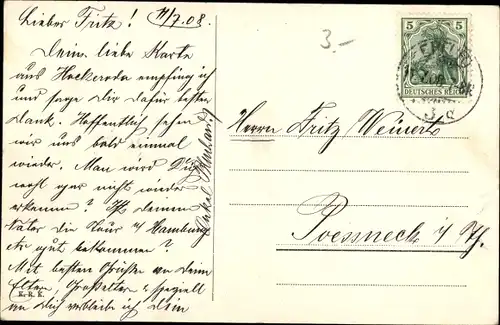 Lieber Fritz! 11/7.08.
Deine liebe Karte
aus Hockeroda empfing ich
und sage Dir dafür besten
Dank. Hoffentlich sehen
wir uns bald einmal
wieder. Man wird Dich
wohl gar nicht wieder
erkennen? Ist deinem
Vater die Tour n/ Hamburg
gut bekommen?
Mit besten Grüßen an deine
Eltern, Großeltern & speziell
an Dich verbleibe ich Dein
Onkel
3-
5 5
DEUTSCHES REICH
Herrn Fritz Weinert
Poessneck i/ Th.